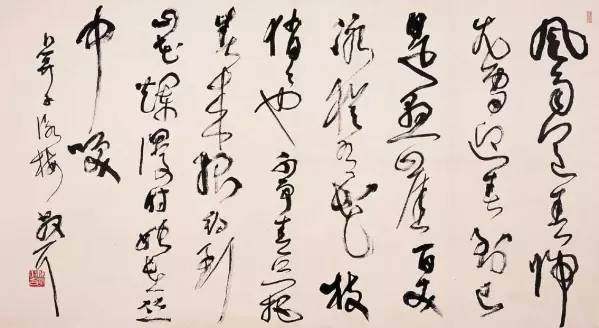 風雨送春歸
飛雪迎春到已
是懸崖百丈
冰猶有花枝
俏俏也不爭春只把
春來報待到
山花爛漫時她在叢
中笑
卜算子詠梅